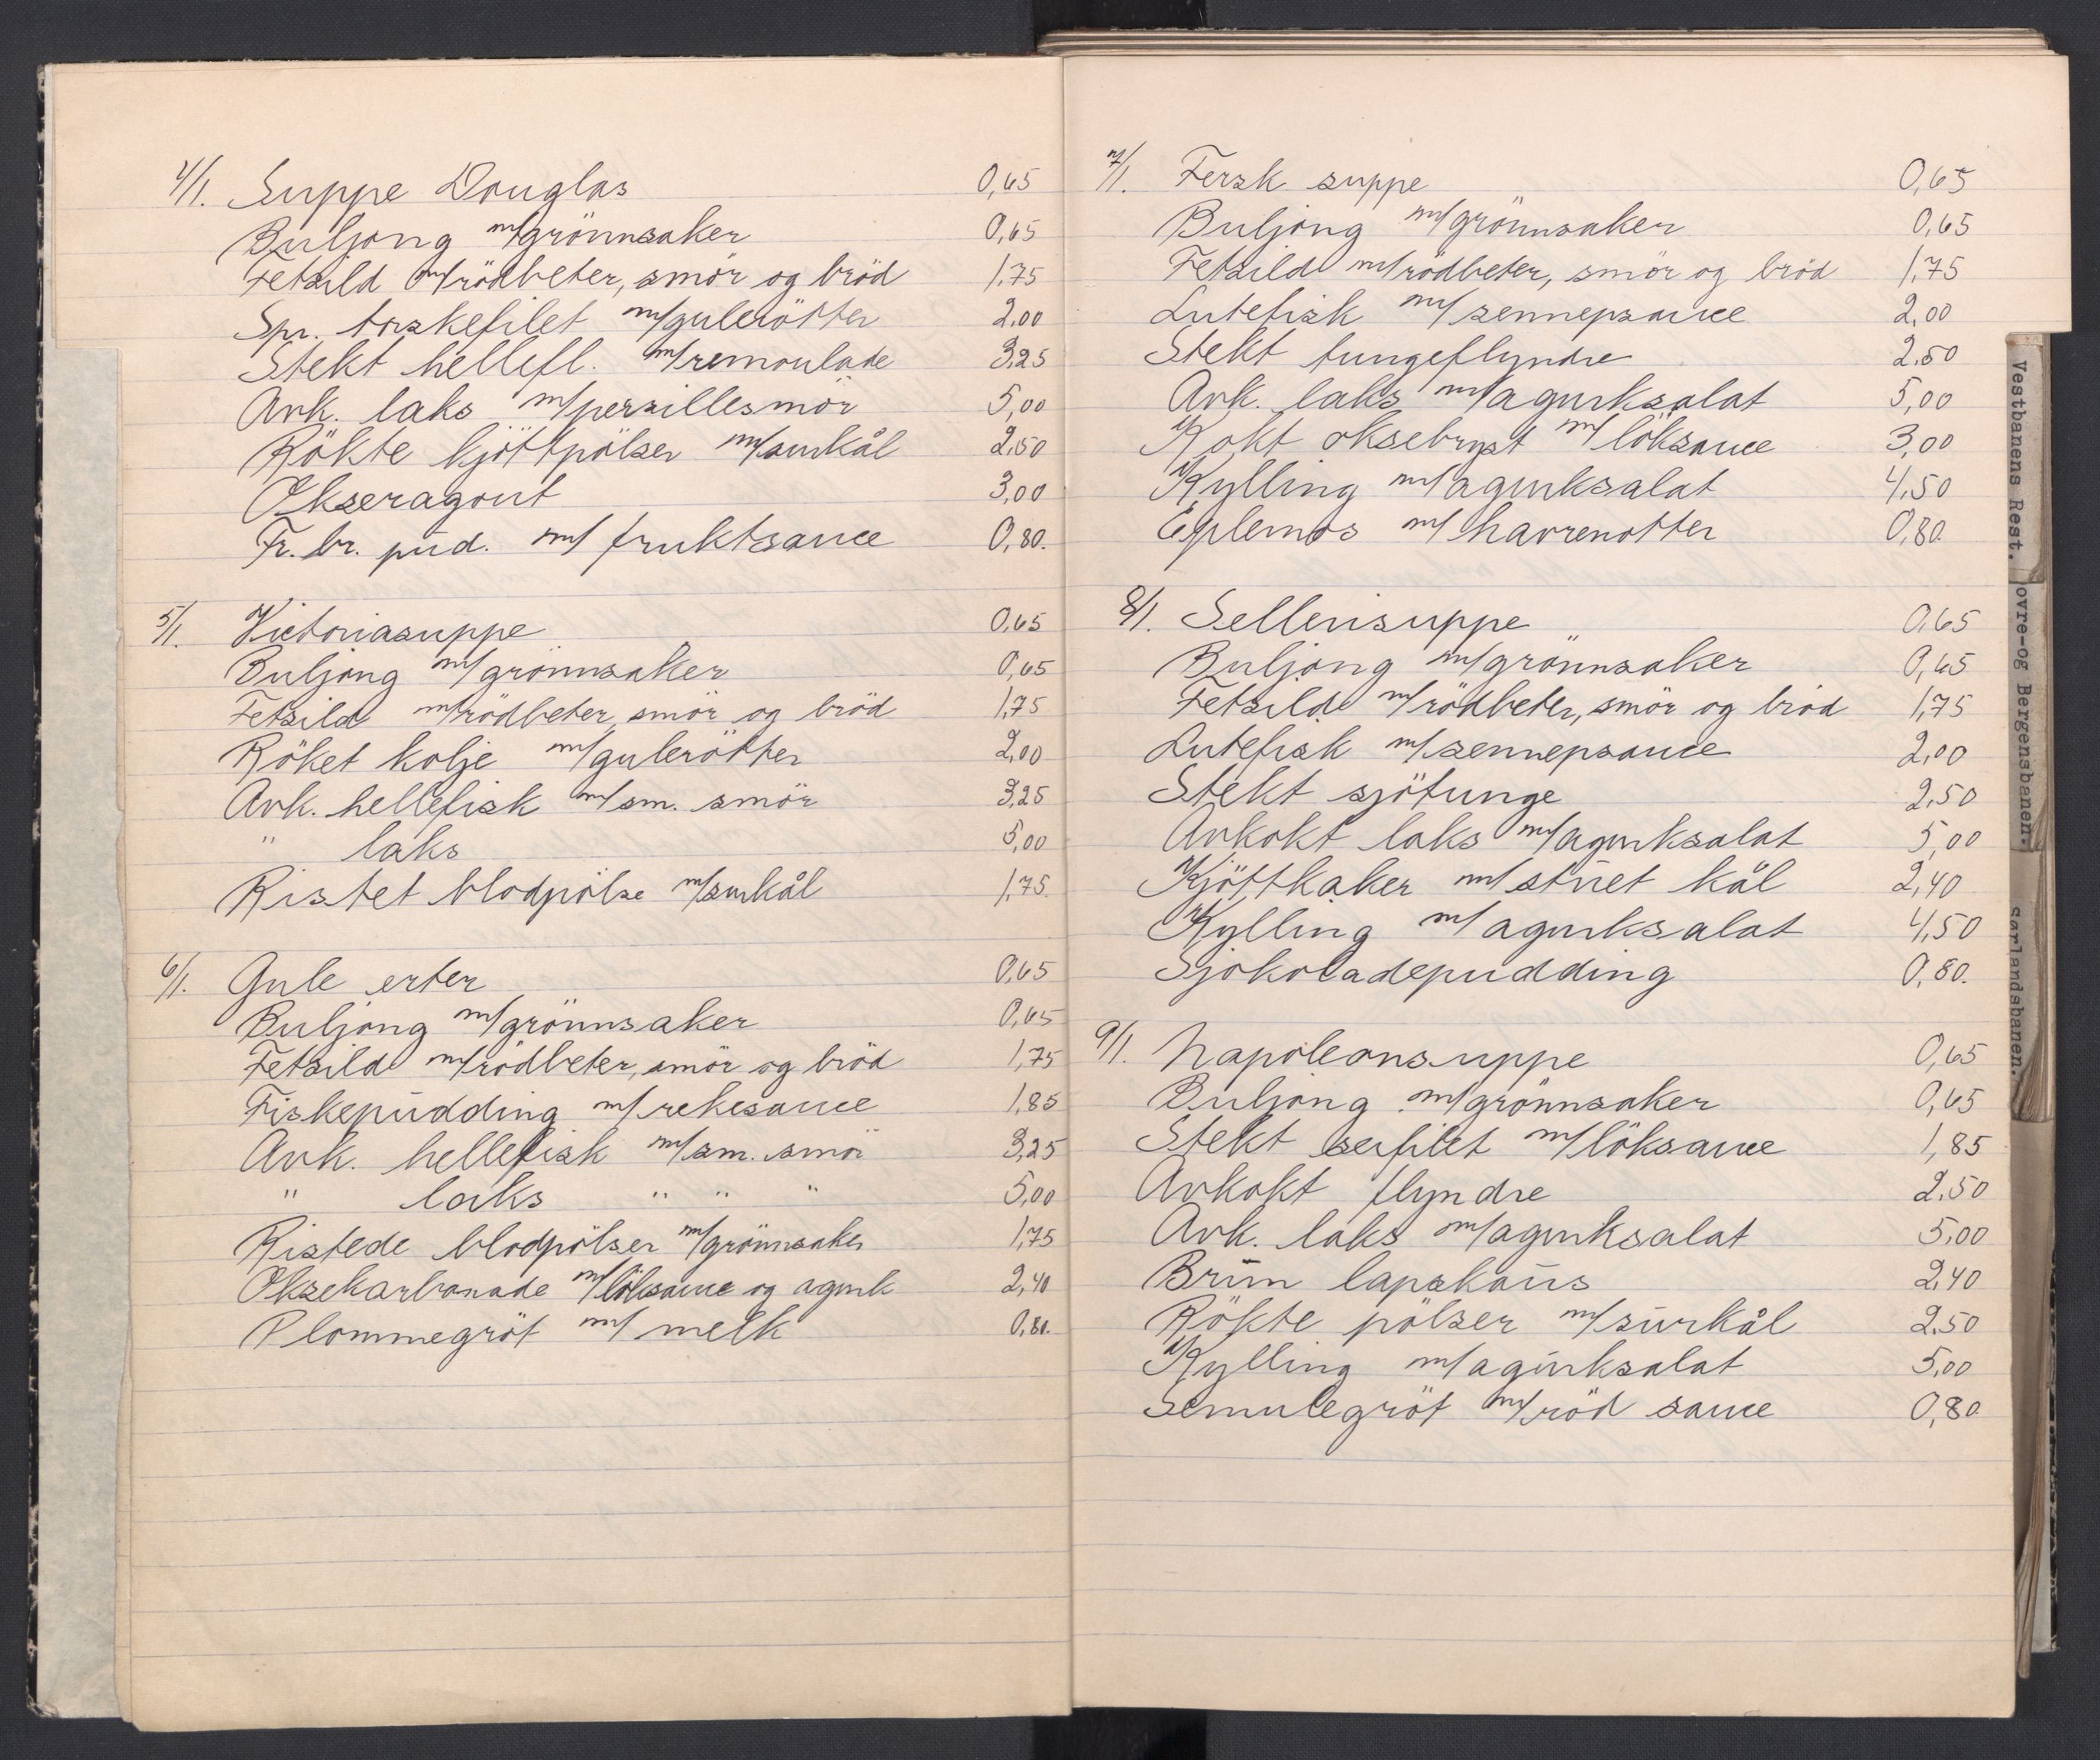 4/1. Suppe Douglas 0,65
Buljong m/grönnsaker 0,65
Fetsild m/rödbeter, smör og bröd 1,75
Spr. torskefilet m/gulerötter 2,00
Stekt hellefl. m/remoulade 3,25
Avk. laks m/persillesmör 5,00
Rökte kjöttpölser m/surkål 2,50
Okseragout 3,00
Fr. br. pud. m/ fruktsauce 0,80.
5/1. Victoriasuppe 0,65
Buljong m/grönnsaker 0,65
Fetsild m/rödbeter, smör og bröd 1,75
Röket kolje m/gulerötter 2,00
Avk. hellefisk m/sm. smör 3,25
" laks 5,00
Ristet blodpölse m/surkål 1,75.
6/1. Gule erter 0,65
Buljong m/grönnsaker 0,65
Fetsild m/rödbeter, smör og bröd 1,75
Fiskepudding m/rekesauce 1,85
Avk. hellefisk m/sm. smör 3,25
" laks " " " 5,00
Ristede blodpölser m/grönnsaker 1,75
Oksekarbonade m/löksauce og agurk 2,40
Plommegröt m/ melk 0,80.
7/1. Fersk suppe 0,65
Buljong m/grönnsaker 0,65
Fetsild m/rödbeter, smör og bröd 1,75
Lutefisk m/sennepsauce 2,00
Stekt tungeflyndre 2,50
Avk. laks m/agurksalat 5,00
Kokt oksebryst m/löksauce 3,00
Kylling m/agurksalat 4,50
Eplemos m/havrenötter 0,80.
8/1. Sellerisuppe 0,65
Buljong m/grönnsaker 0,65
Fetsild m/rödbeter, smör og bröd 1,75
Lutefisk m/sennepsauce 2,00
Stekt sjötunge 2,50
Avkokt laks m/agurksalat 5,00
Kjöttkaker m/stuet kål 2,40
Kylling m/agurksalat 4,50
Sjokoladepudding 0,80.
9/1. Napoleonsuppe 0,65
Buljong m/grönnsaker 0,65
Stekt seifilet m/löksauce 1,85
Avkokt flyndre 2,50
Avk. laks m/agurksalat 5,00
Brun lapskaus 2,40
Rökte pölser m/surkål 2,50
Kylling m/agurksalat 5,00
Semulegröt m/röd sauce 0,80
Vestbanens Rest.
ovre-og Bergensbanen.
sørlandsbanen.